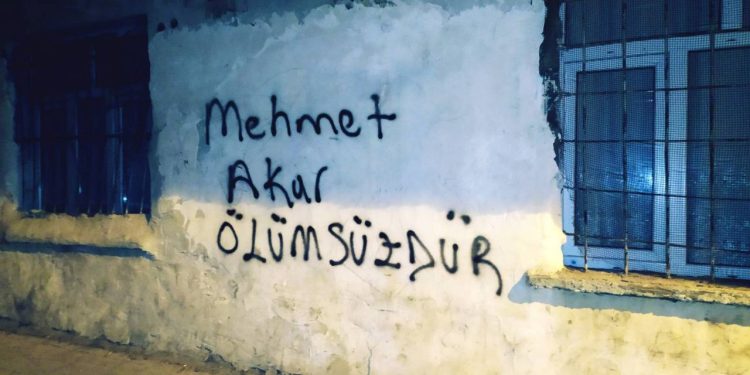 Mehmet
Akar
ÖLÜMSÜZDÜR